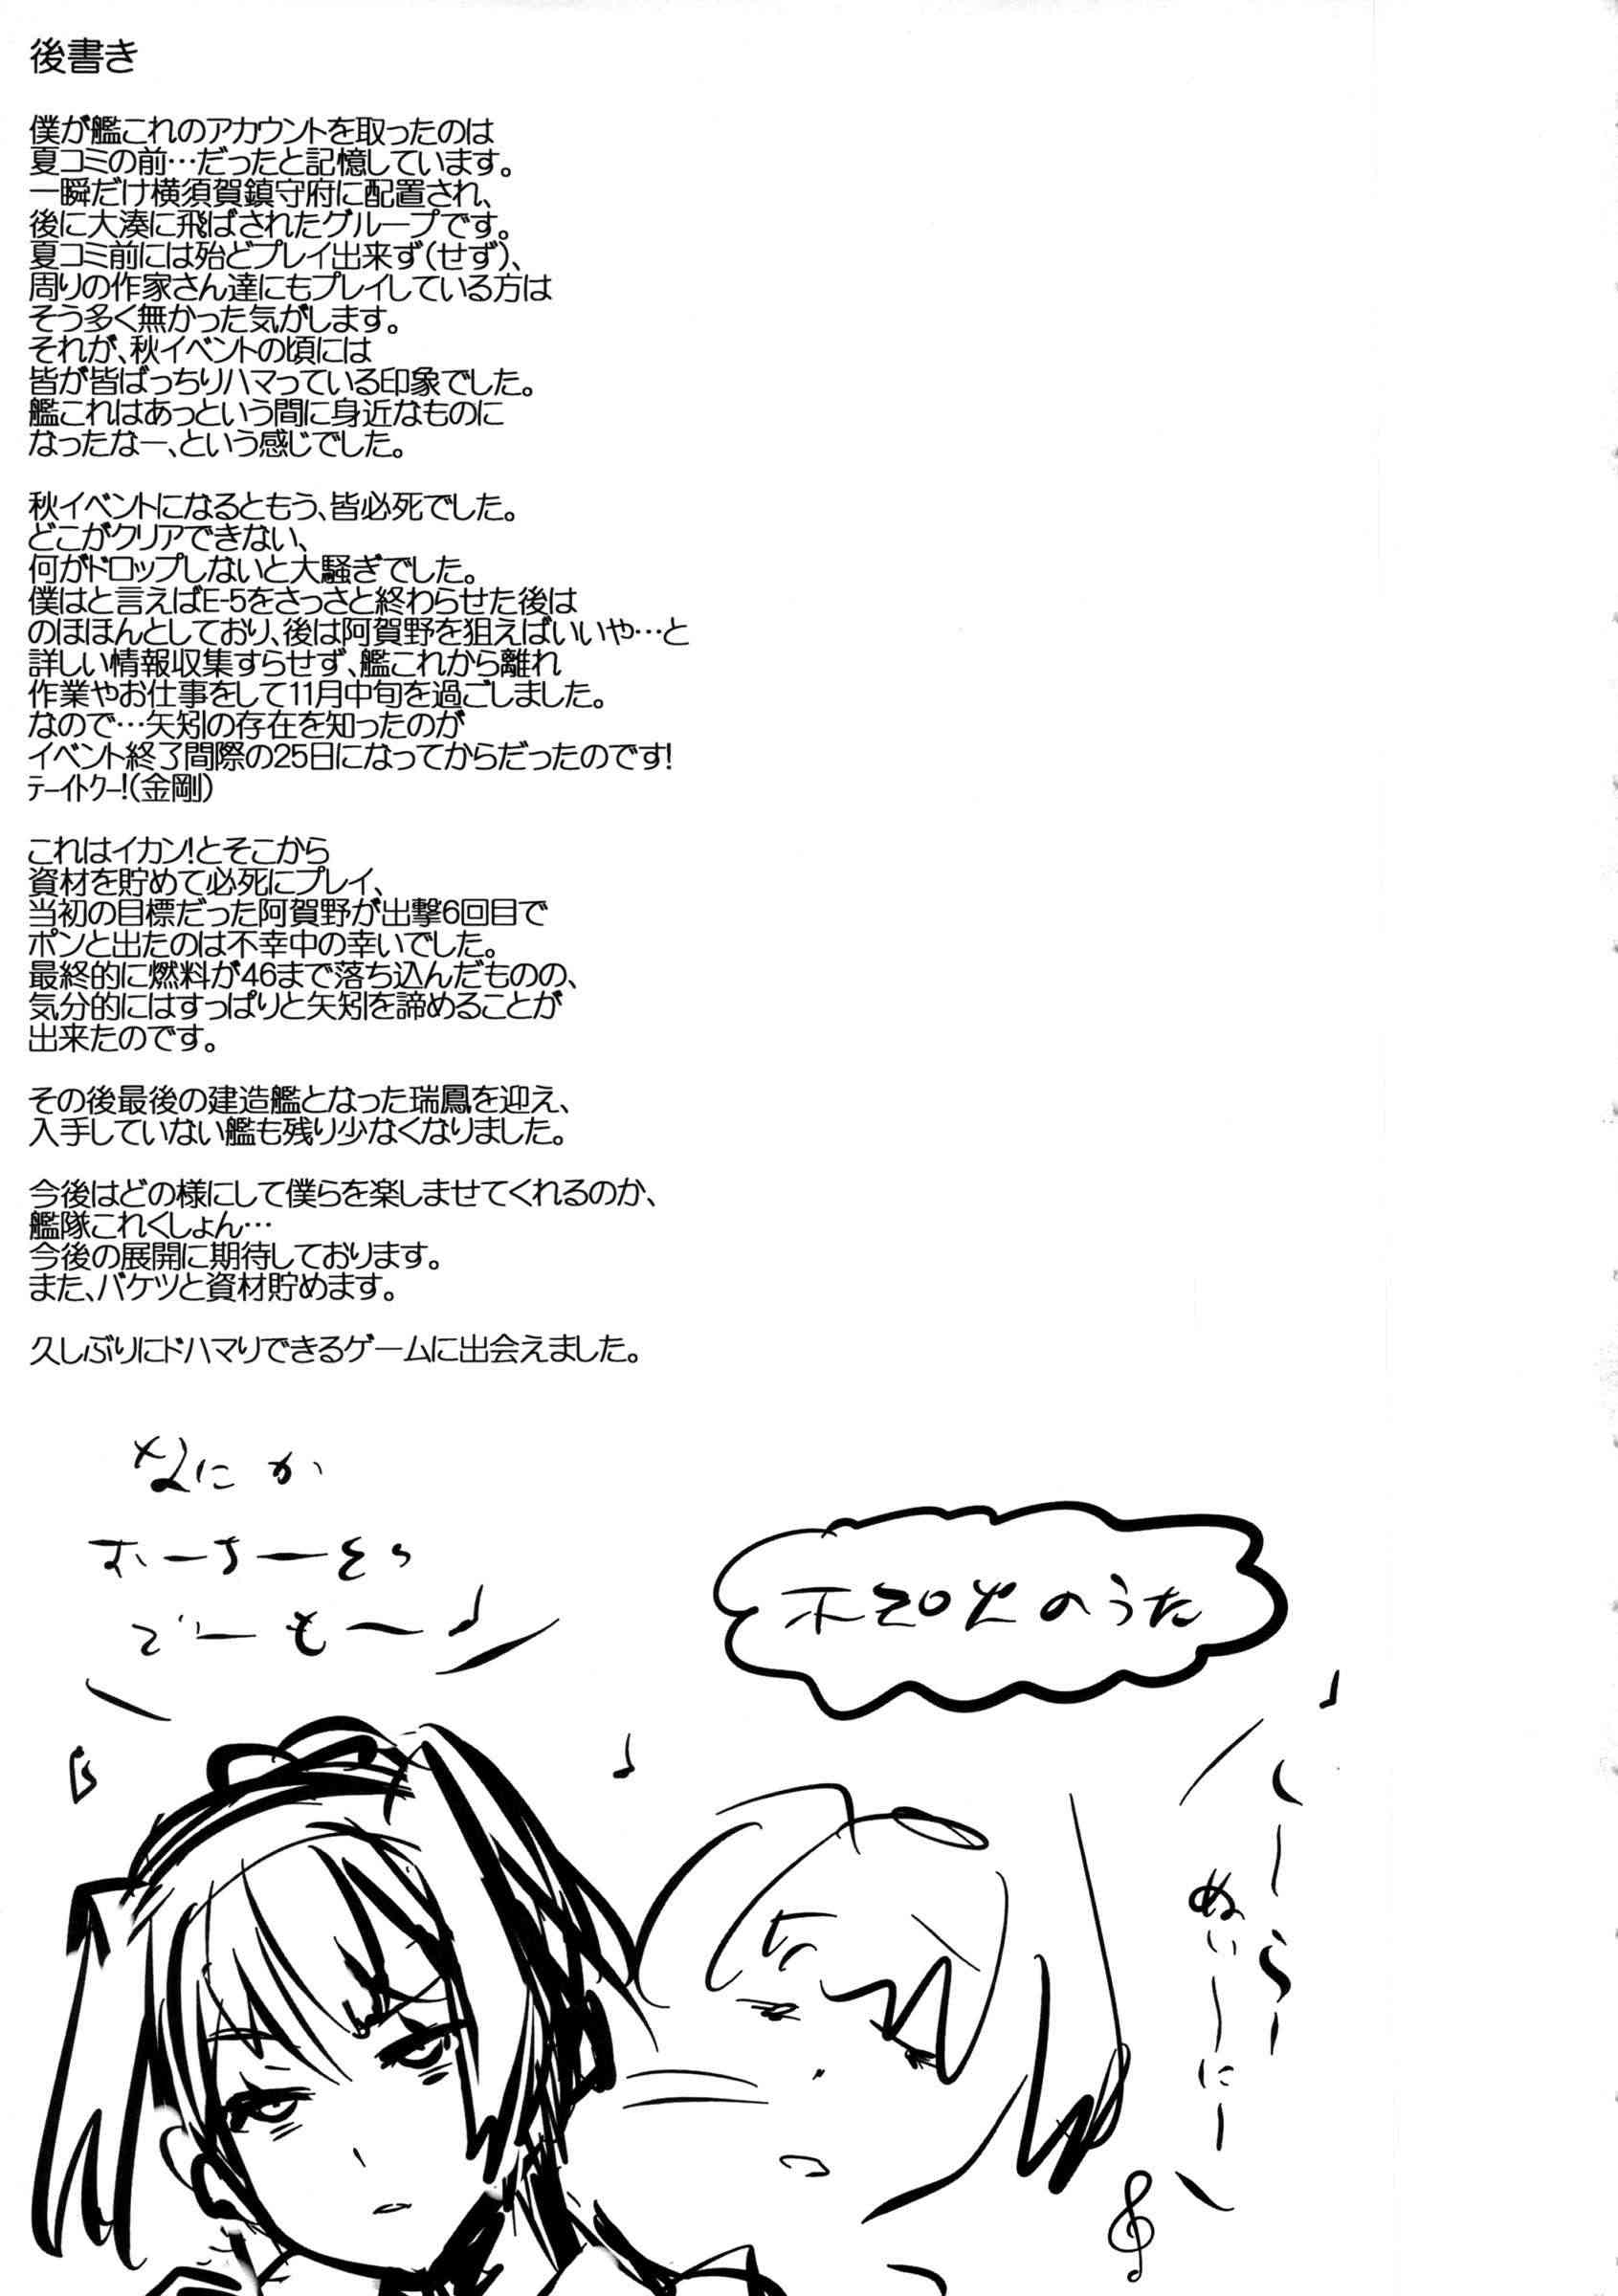 後書き
僕が艦これのアカウントを取ったのは
夏コミの前…だったと記憶しています。
一瞬だけ横須賀鎮守府に配置され、
後に大湊に飛ばされたグループです。
夏コミ前には殆どプレイ出来ず(せず)、
周りの作家さん達にもプレイしている方は
そう多く無かった気がします。
それが、秋イベントの頃には
皆が皆ばっちりハマっている印象でした。
艦これはあっという間に身近なものに
なったなー、という感じでした。
秋イベントになるともう、皆必死でした。
どこがクリアできない、
何がドロップしないと大騒ぎでした。
僕はと言えばE-5をさっさと終わらせた後は
のほほんとしており、後は阿賀野を狙えばいいや…と
詳しい情報収集すらせず、艦これから離れ
作業やお仕事をして11月中旬を過ごしました。
なので…矢矧の存在を知ったのが
イベント終了間際の25日になってからだったのです!
ﾃｰｲﾄｸｰ!(金剛)
これはイカン!とそこから
資材を貯めて必死にプレイ、
当初の目標だった阿賀野が出撃6回目で
ポンと出たのは不幸中の幸いでした。
最終的に燃料が46まで落ち込んだものの、
気分的にはすっぱりと矢矧を諦めることが
出来たのです。
その後最後の建造艦となった瑞鳳を迎え、
入手していない艦も残り少なくなりました。
今後はどの様にして僕らを楽しませてくれるのか、
艦隊これくしょん…
今後の展開に期待しております。
また、バケツと資材貯めます。
久しぶりにドハマりできるゲームに出会えました。
なにか
おーちーど
でーもー♪
不知火のうた
しーらー
ぬいーにー